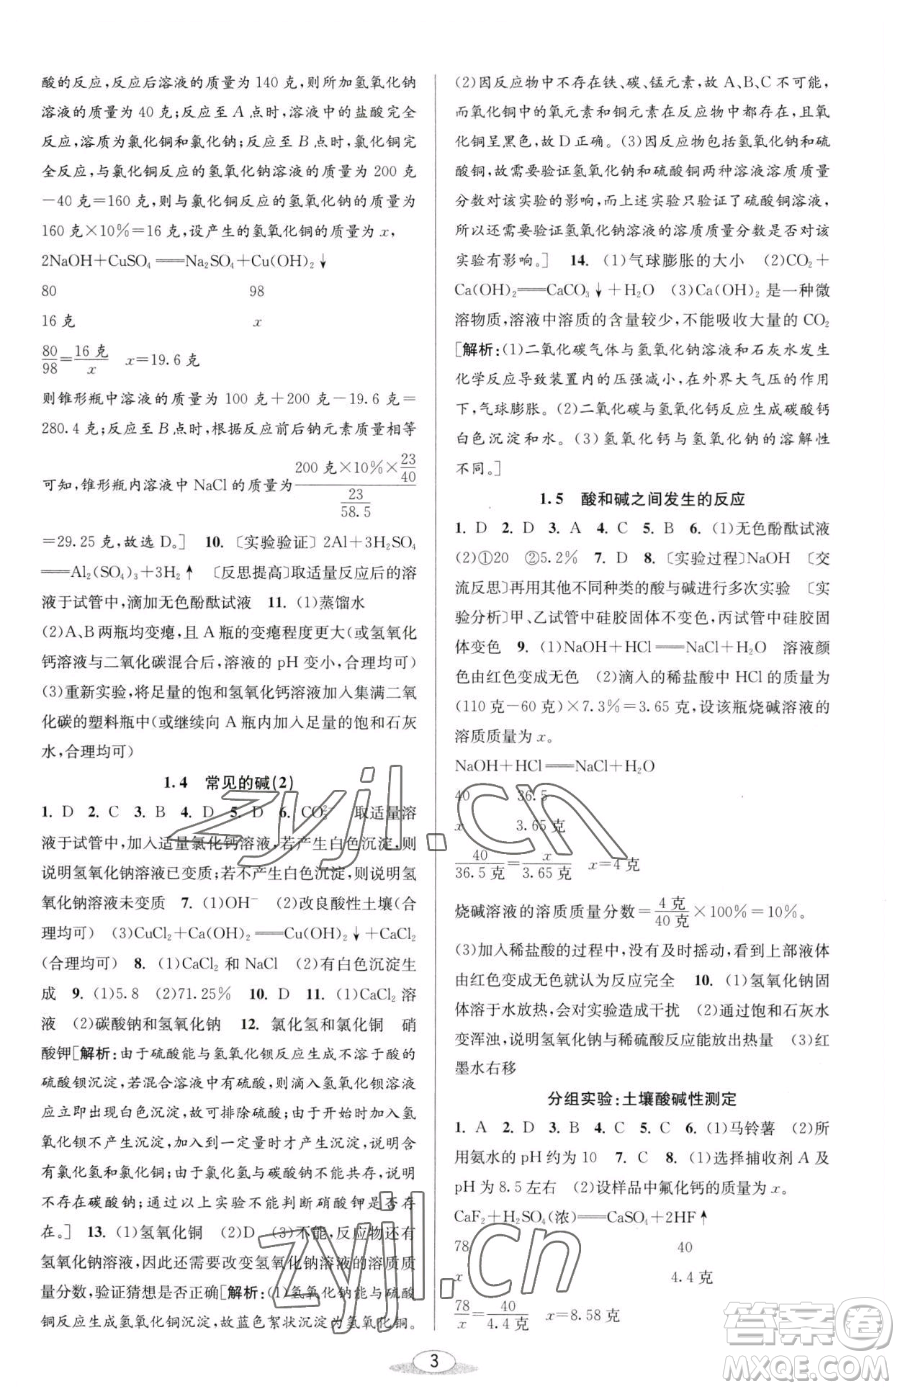 酸的反应,反应后溶液的质量为 140 克,则所加氢氧化钠
溶液的质量为 40 克;反应至 A 点时,溶液中的盐酸完全
反应,溶质为氯化铜和氯化钠;反应至 B 点时,氯化铜完
全反应,与氯化铜反应的氢氧化钠溶液的质量为 200 克
-40 克=160 克,则与氯化铜反应的氢氧化钠的质量为
160 克×10%=16 克,设产生的氢氧化铜的质量为 x,
2NaOH+CuSO₄══Na₂SO₄+Cu(OH)₂↓
80 98
16 克 x
80/98=16 克/x x=19.6 克
则锥形瓶中溶液的质量为 100 克+200 克-19.6 克=
280.4 克;反应至 B 点时,根据反应前后钠元素质量相等
可知,锥形瓶内溶液中 NaCl 的质量为(200 克×10%×23/40)/(23/58.5)
=29.25 克,故选 D。] 10. 〔实验验证〕2Al+3H₂SO₄
══Al₂(SO₄)₃+3H₂↑ 〔反思提高〕取适量反应后的溶
液于试管中,滴加无色酚酞试液 11. (1)蒸馏水
(2)A、B 两瓶均变瘪,且 A 瓶的变瘪程度更大(或氢氧化
钙溶液与二氧化碳混合后,溶液的 pH 变小,合理均可)
(3)重新实验,将足量的饱和氢氧化钙溶液加入集满二氧
化碳的塑料瓶中(或继续向 A 瓶内加入足量的饱和石灰
水,合理均可)
1.4 常见的碱(2)
1. D 2. C 3. B 4. D 5. D 6. CO₃²⁻ 取适量溶
液于试管中,加入适量氯化钙溶液,若产生白色沉淀,则
说明氢氧化钠溶液已变质;若不产生白色沉淀,则说明氢
氧化钠溶液未变质 7. (1)OH⁻ (2)改良酸性土壤(合
理均可) (3)CuCl₂+Ca(OH)₂══Cu(OH)₂↓+CaCl₂
(合理均可) 8. (1)CaCl₂ 和 NaCl (2)有白色沉淀生
成 9. (1)5.8 (2)71.25% 10. D 11. (1)CaCl₂ 溶
液 (2)碳酸钠和氢氧化钠 12. 氯化氢和氯化铜 硝
酸钾[解析:由于硫酸能与氢氧化钡反应生成不溶于酸的
硫酸钡沉淀,若混合溶液中有硫酸,则滴入氢氧化钡溶液
应立即出现白色沉淀,故能排除硫酸;由于开始时加入氢
氧化钡不产生沉淀,加入到一定量时才产生沉淀,说明含
有氯化氢和氯化铜;由于氯化氢与碳酸钠不能共存,说明
不存在碳酸钠;通过以上实验不能判断硝酸钾是否存
在。] 13. (1)氢氧化铜 (2)D (3)不能,反应物还有
氢氧化钠溶液,所以还需要改变氢氧化钠溶液的溶质质
量分数,验证猜想是否正确[解析:(1)氢氧化钠能与硫酸
铜反应生成氢氧化铜沉淀,故蓝色絮状沉淀为氢氧化铜。
(2)因反应物中不存在铁、碳、锰元素,故 A、B、C 不可能,
而氧化铜中的氧元素和铜元素在反应物中都存在,且氧
化铜呈黑色,故 D 正确。(3)因反应物包括氢氧化钠和硫
酸铜,故需要验证氢氧化钠和硫酸铜两种溶液溶质质量
分数对该实验的影响,而上述实验只验证了硫酸铜溶液,
所以还需要验证氢氧化钠溶液的溶质质量分数是否对该
实验有影响。] 14. (1)气球膨胀的大小 (2)CO₂+
Ca(OH)₂══CaCO₃↓+H₂O (3)Ca(OH)₂ 是一种微
溶物质,溶液中溶质的含量较少,不能吸收大量的 CO₂
[解析:(1)二氧化碳气体与氢氧化钠溶液和石灰水发生化
学反应导致装置内的压强减小,在外界大气压的作用
下,气球膨胀。(2)二氧化碳与氢氧化钙反应生成碳酸钙
白色沉淀和水。(3)氢氧化钙与氢氧化钠的溶解性
不同。]
1.5 酸和碱之间发生的反应
1. D 2. D 3. A 4. C 5. B 6. (1)无色酚酞试液
(2)①20 ②5.2% 7. D 8. 〔实验过程〕NaOH 〔交
流反思〕再用其他不同种类的酸与碱进行多次实验 〔实
验分析〕甲、乙试管中硅胶固体不变色,丙试管中硅胶固
体变色 9. (1)NaOH+HCl══NaCl+H₂O 溶液颜
色由红色变成无色 (2)滴入的稀盐酸中 HCl 的质量为
(110 克-60 克)×7.3%=3.65 克,设该瓶烧碱溶液的
溶质质量为 x。
NaOH+HCl══NaCl+H₂O
40 36.5
x 3.65 克
40/36.5 克=x/3.65 克 x=4 克
烧碱溶液的溶质质量分数=4 克/40 克×100%=10%。
(3)加入稀盐酸的过程中,没有及时摇动,看到上部液体
由红色变成无色就认为反应完全 10. (1)氢氧化钠固
体溶于水放热,会对实验造成干扰 (2)广口瓶中饱和石灰水
变浑浊,说明氢氧化钠与稀硫酸反应能放出热量 (3)红
墨水右移
分组实验:土壤酸碱性测定
1. A 2. D 3. B 4. D 5. C 6. (1)马铃薯 (2)所
用氨水的 pH 约为 10 7. C 8. (1)选择捕收剂 A 及
pH 为 8.5 左右 (2)设样品中氟化钙的质量为 x。
CaF₂+H₂SO₄(浓)══CaSO₄+2HF↑
78 40
x 4.4 克
78/x=40/4.4 克 x=8.58 克
3
zyjl.cn
zyjl.cn
答案圈
MXQE.COM